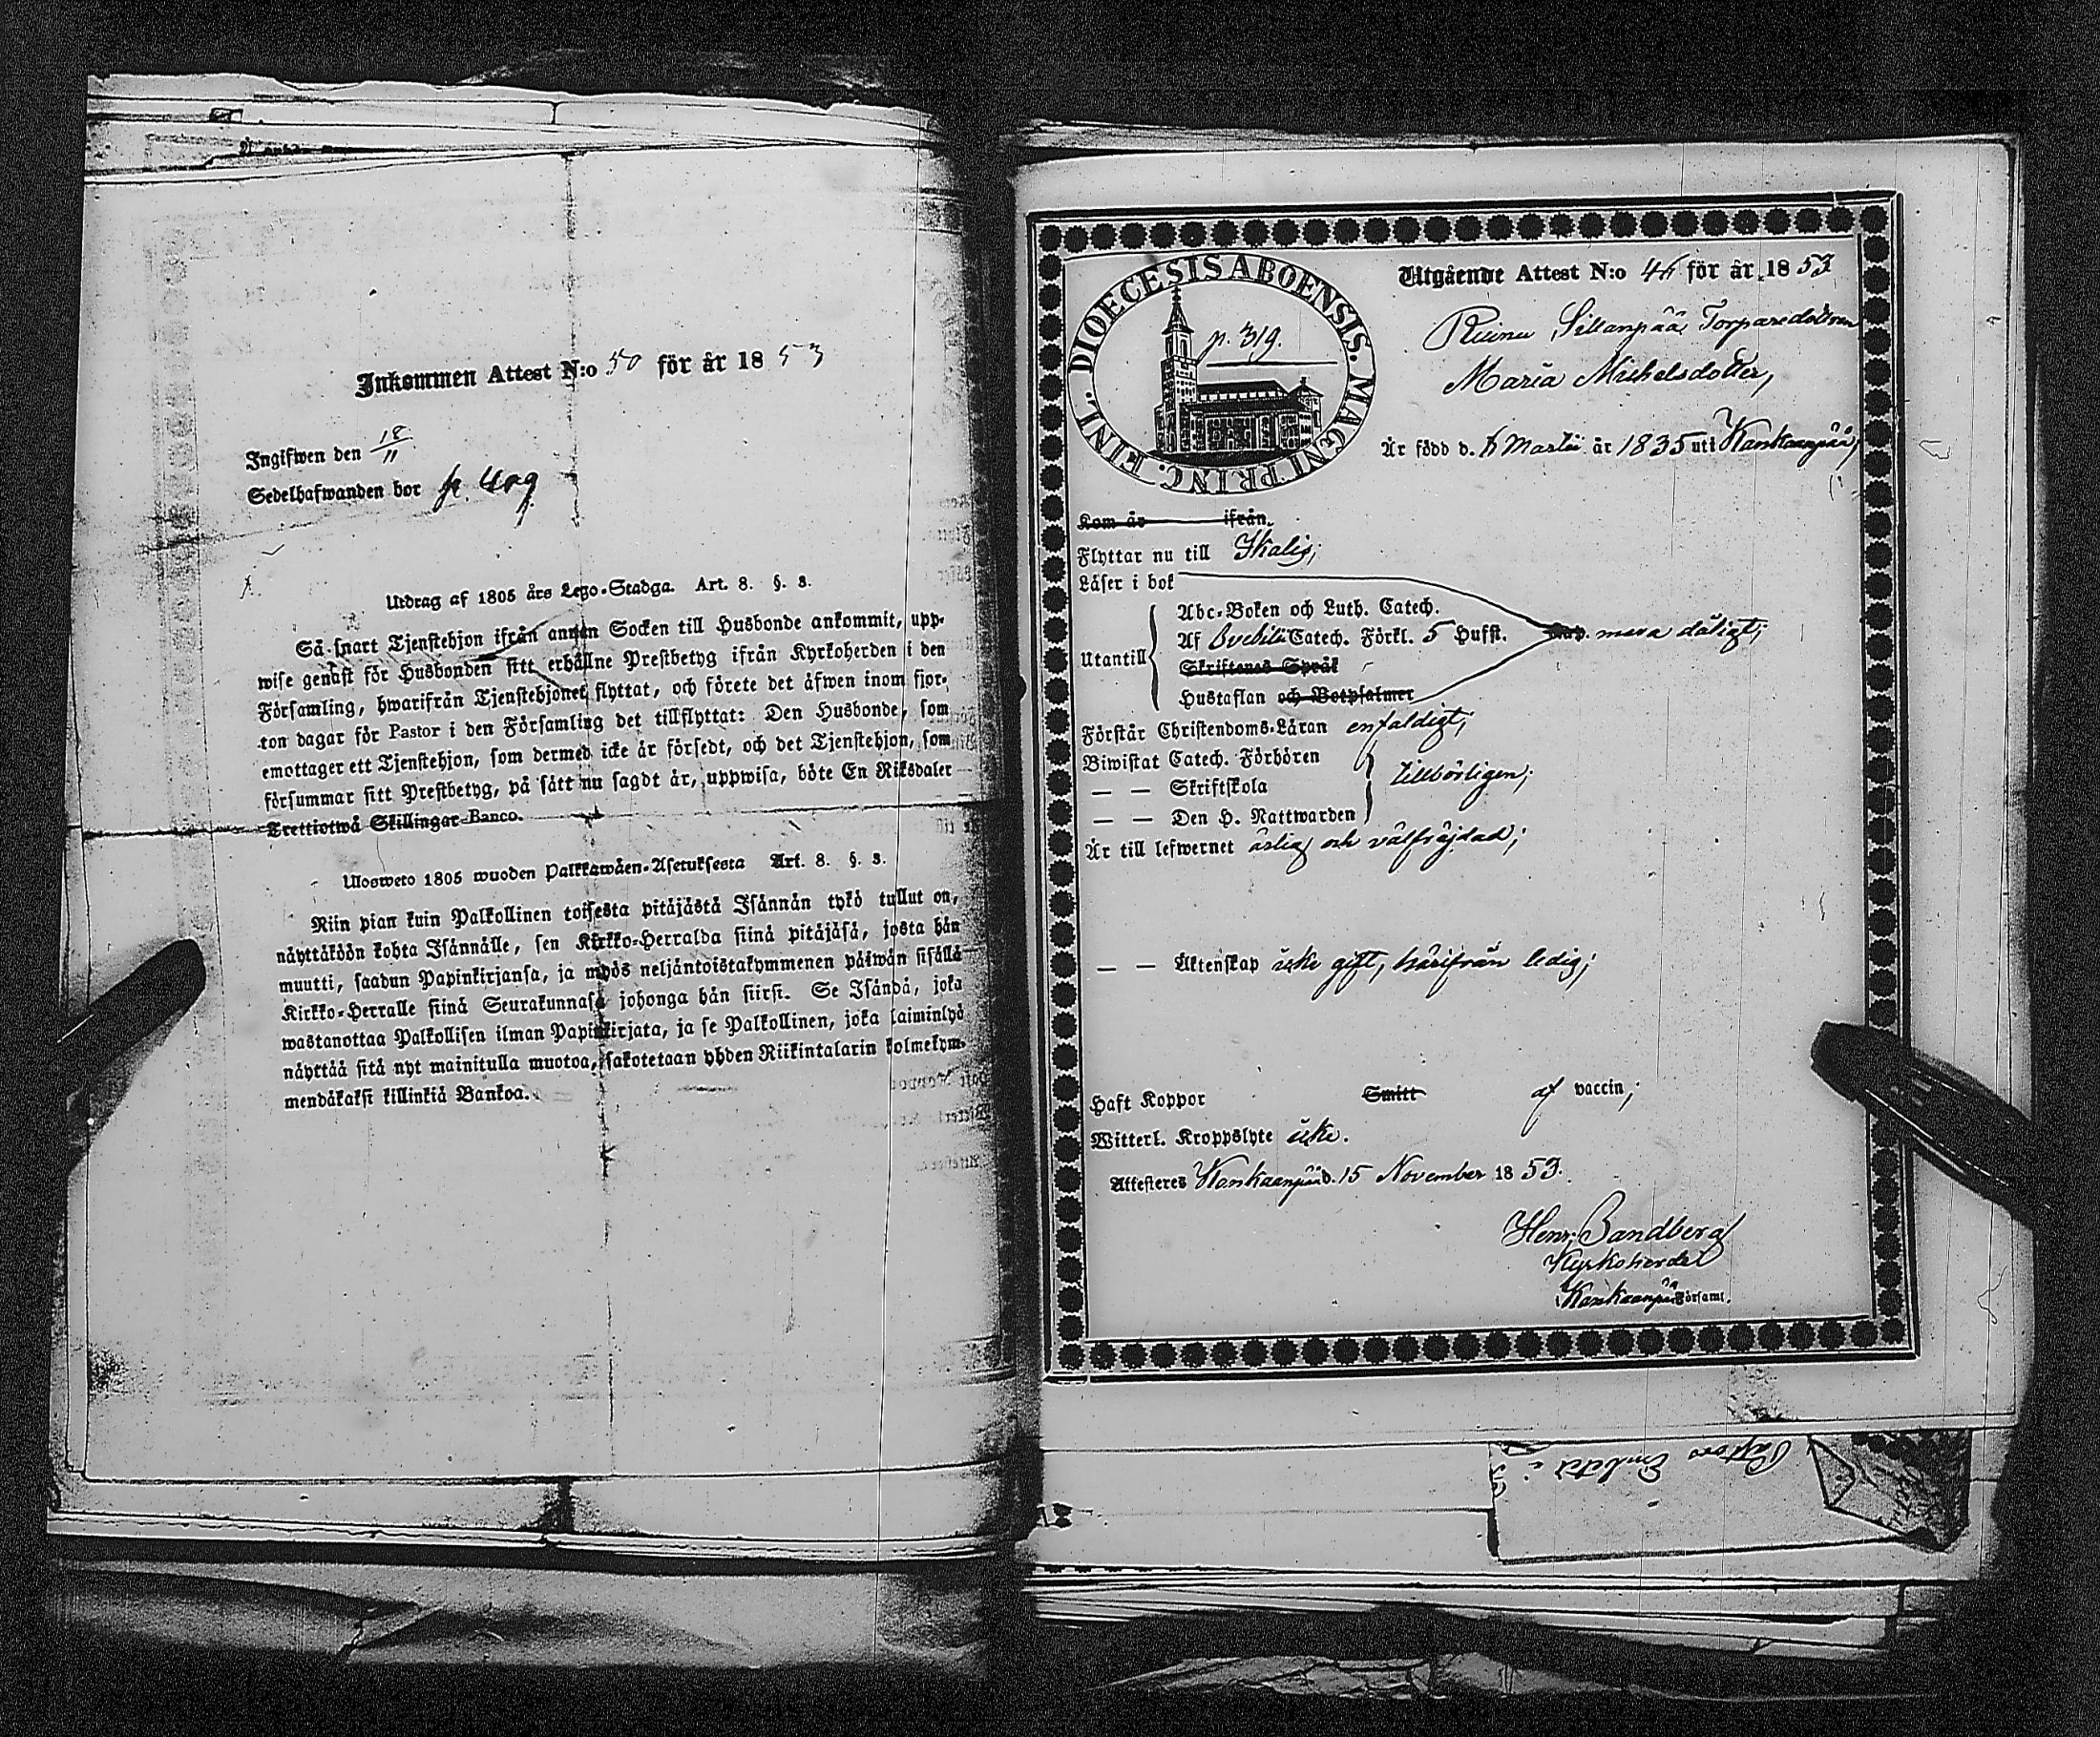 Inkommen Attest N:o 50 för år 1853
Ingifwen den 18/11
Sedelhafwanden bor
Utdrag af 1805 års Lego-Stadga. Art. 8. §. 3.
Så snart Tjenstehjon ifrån annan Socken till Husbonde ankommit, upp-
wise genast för Husbonden sitt erhållne Prestbetyg ifrån Kyrkoherden i den
Församling, hwarifrån Tjenstehjonet flyttat, och förete det äfwen inom fjor-
ton dagar för Pastor i den Församling det tillflyttat: Den Husbonde, som
emottager ett Tjenstehjon, som dermed icke är försedt, och det Tjenstehjon, som
försummar sitt Prestbetyg, på sätt nu sagdt är, uppwisa, böte En Riksdaler
Trettiotwå Skillingar Banco.
Ulosweto 1805 wuoden Palkkawäen-Asetuksesta Art. 8. §. 3.
Niin pian kuin Palkollinen toisesta pitäjästä Isännän tykö tullut on,
näyttäköön kohta Isännälle, sen Kirkko-Herralda siinä pitäjäsä, josta hän
muutti, saadun Papinkirjansa, ja myös neljäntoistakymmenen päiwän sisällä
Kirkko-Herralle siinä Seurakunnasa johonga hän siirsi. Se Isändä, joka
wastanottaa Palkollisen ilman Papinkirjata, ja se Palkollinen, joka laiminlyö
näyttää sitä nyt mainitulla muotoa, sakotetaan yhden Riikintalarin kolmekym-
mendäkaksi killinkiä Bankoa.
DIOECESIS ABOENSIS. MAGNI PRINC. FINL.
p. 319.
Utgående Attest N:o 46 för år 1853
Sillanpää Torparedottren
Maria Michelsdotter,
Är född d. 6 Martii år 1835 uti Kankaanpää,
Kom år ifrån
Flyttar nu till Ikalis;
Läser i bok
Abc-Boken och Luth. Catech.
Utantill Af Svebilii Catech. Förkl. 5 Hufst. mera dåligt;
Skriftenes Språk
Hustaflan och Botpsalmer
Förstår Christendoms-Läran enfaldigt;
Biwistat Catech. Förhören
— — Skriftskola tillbörligen;
— — Den H. Nattwarden
Är till lefwernet ärlig och välfräjdad;
— — Äktenskap icke gift, härifrån ledig;
Haft Koppor Smitt af vaccin;
Witterl. Kroppslyte icke.
Attesteres Kankaanpää d. 15 November 1853.
Henr. Sandberg
Kyrkoherde
i Kankaanpää Församl.